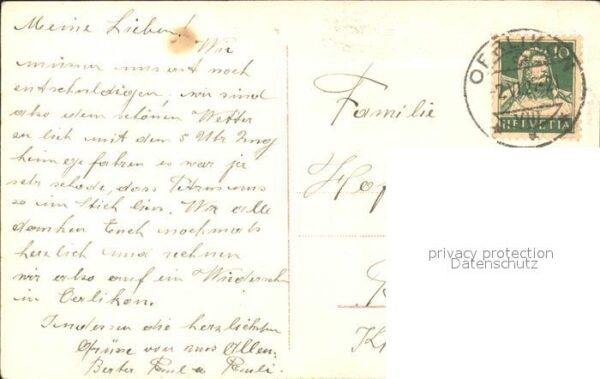 Meine Lieben!
Wir
müssen uns erst noch
entschuldigen, wir sind
also dem schönen Wetter
zu lieb mit dem 5 Uhr Zug
heimgefahren es war ja
sehr schade, dass
so im Stich liess. Wir alle
danken Euch nochmals
herzlich und rechnen
wir also auf ein Wiedersehn
in Oerlikon.
Indessen die herzlichsten
Grüsse von uns Allen.
Paul u Pauli.
Familie
Ho
OERLIKON
10
HELVETIA
privacy protection
Datenschutz